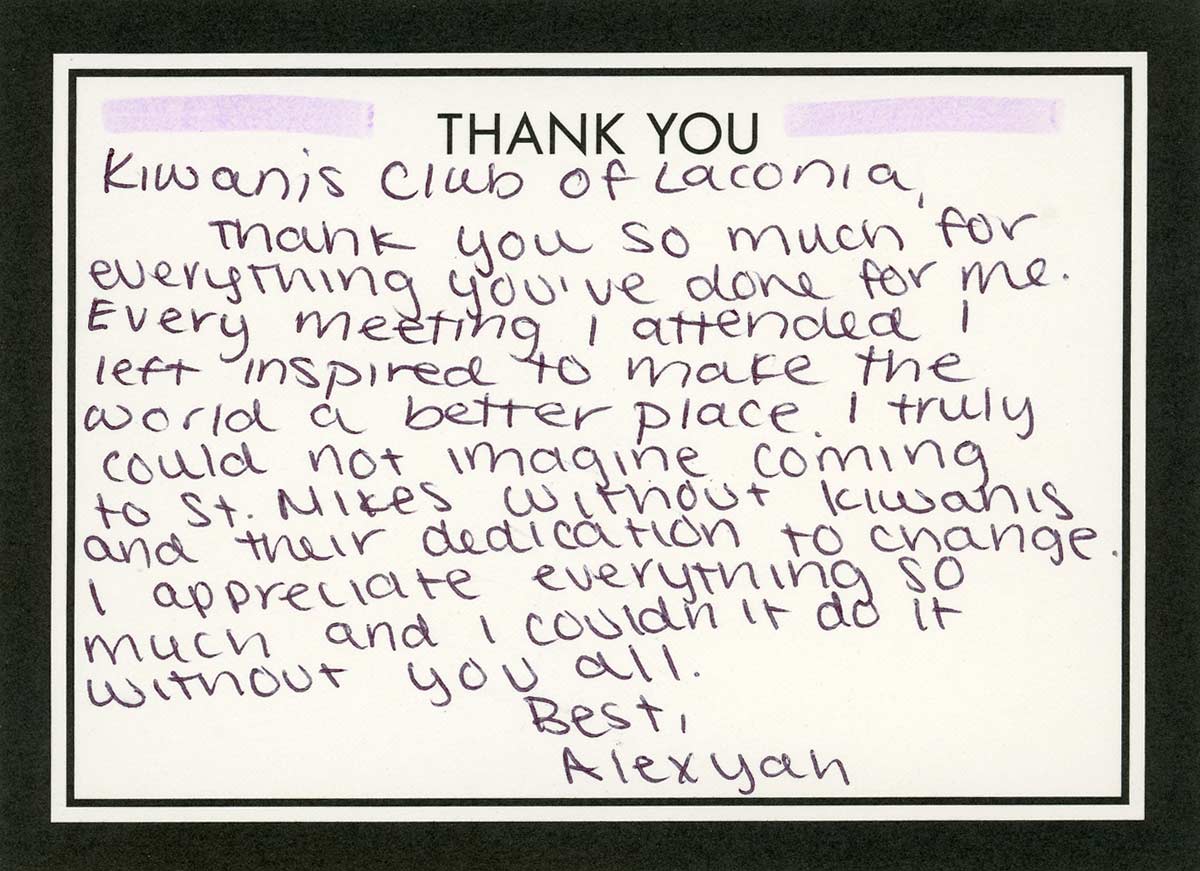 THANK YOU
Kiwanis Club of Laconia,
Thank you so much for
everything you've done for me.
Every meeting I attended I
left inspired to make the
world a better place. I truly
could not imagine coming
to St. Mikes without Kiwanis
and their dedication to change.
I appreciate everything so
much and I couldn't do it
without you all.
Best,
Alexyah